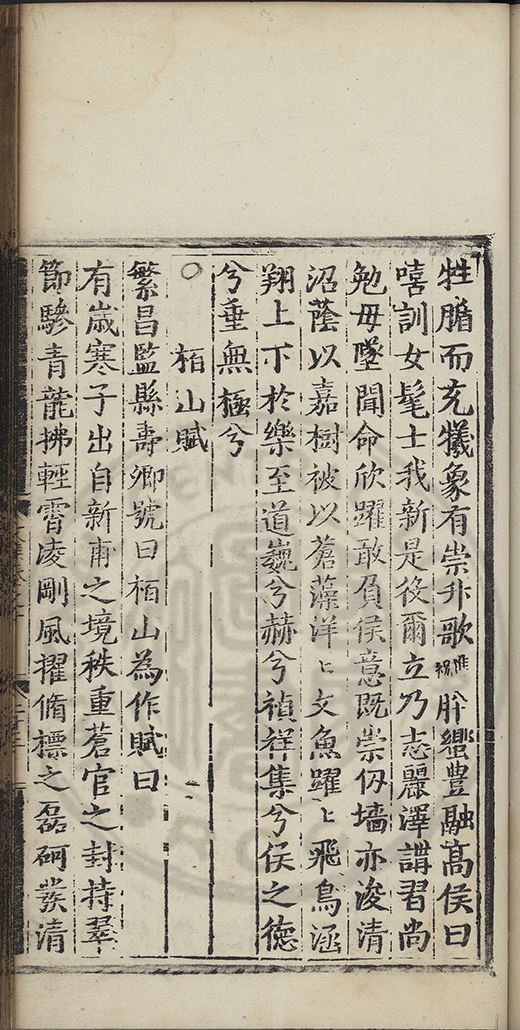 牲腯而充犧象有崇升歌惟祝肸蠁豊融髙侯曰
嘻訓女髦士我新是役爾立乃志麗澤講習尚
勉毋墜聞命欣躍敢負侯意既崇仭墻亦浚清
沼蔭以嘉樹被以蒼藻洋〻文魚躍〻飛鳥涵
翔上下於樂至道巍兮赫兮禎祥集兮侯之德
兮垂無極兮
○ 栢山賦
繁昌監縣壽卿號曰栢山為作賦曰
有嵗寒子出自新甫之境秩重蒼官之封持翠
節驂青龍拂輕霄凌剛風擢脩標之磊砢發清